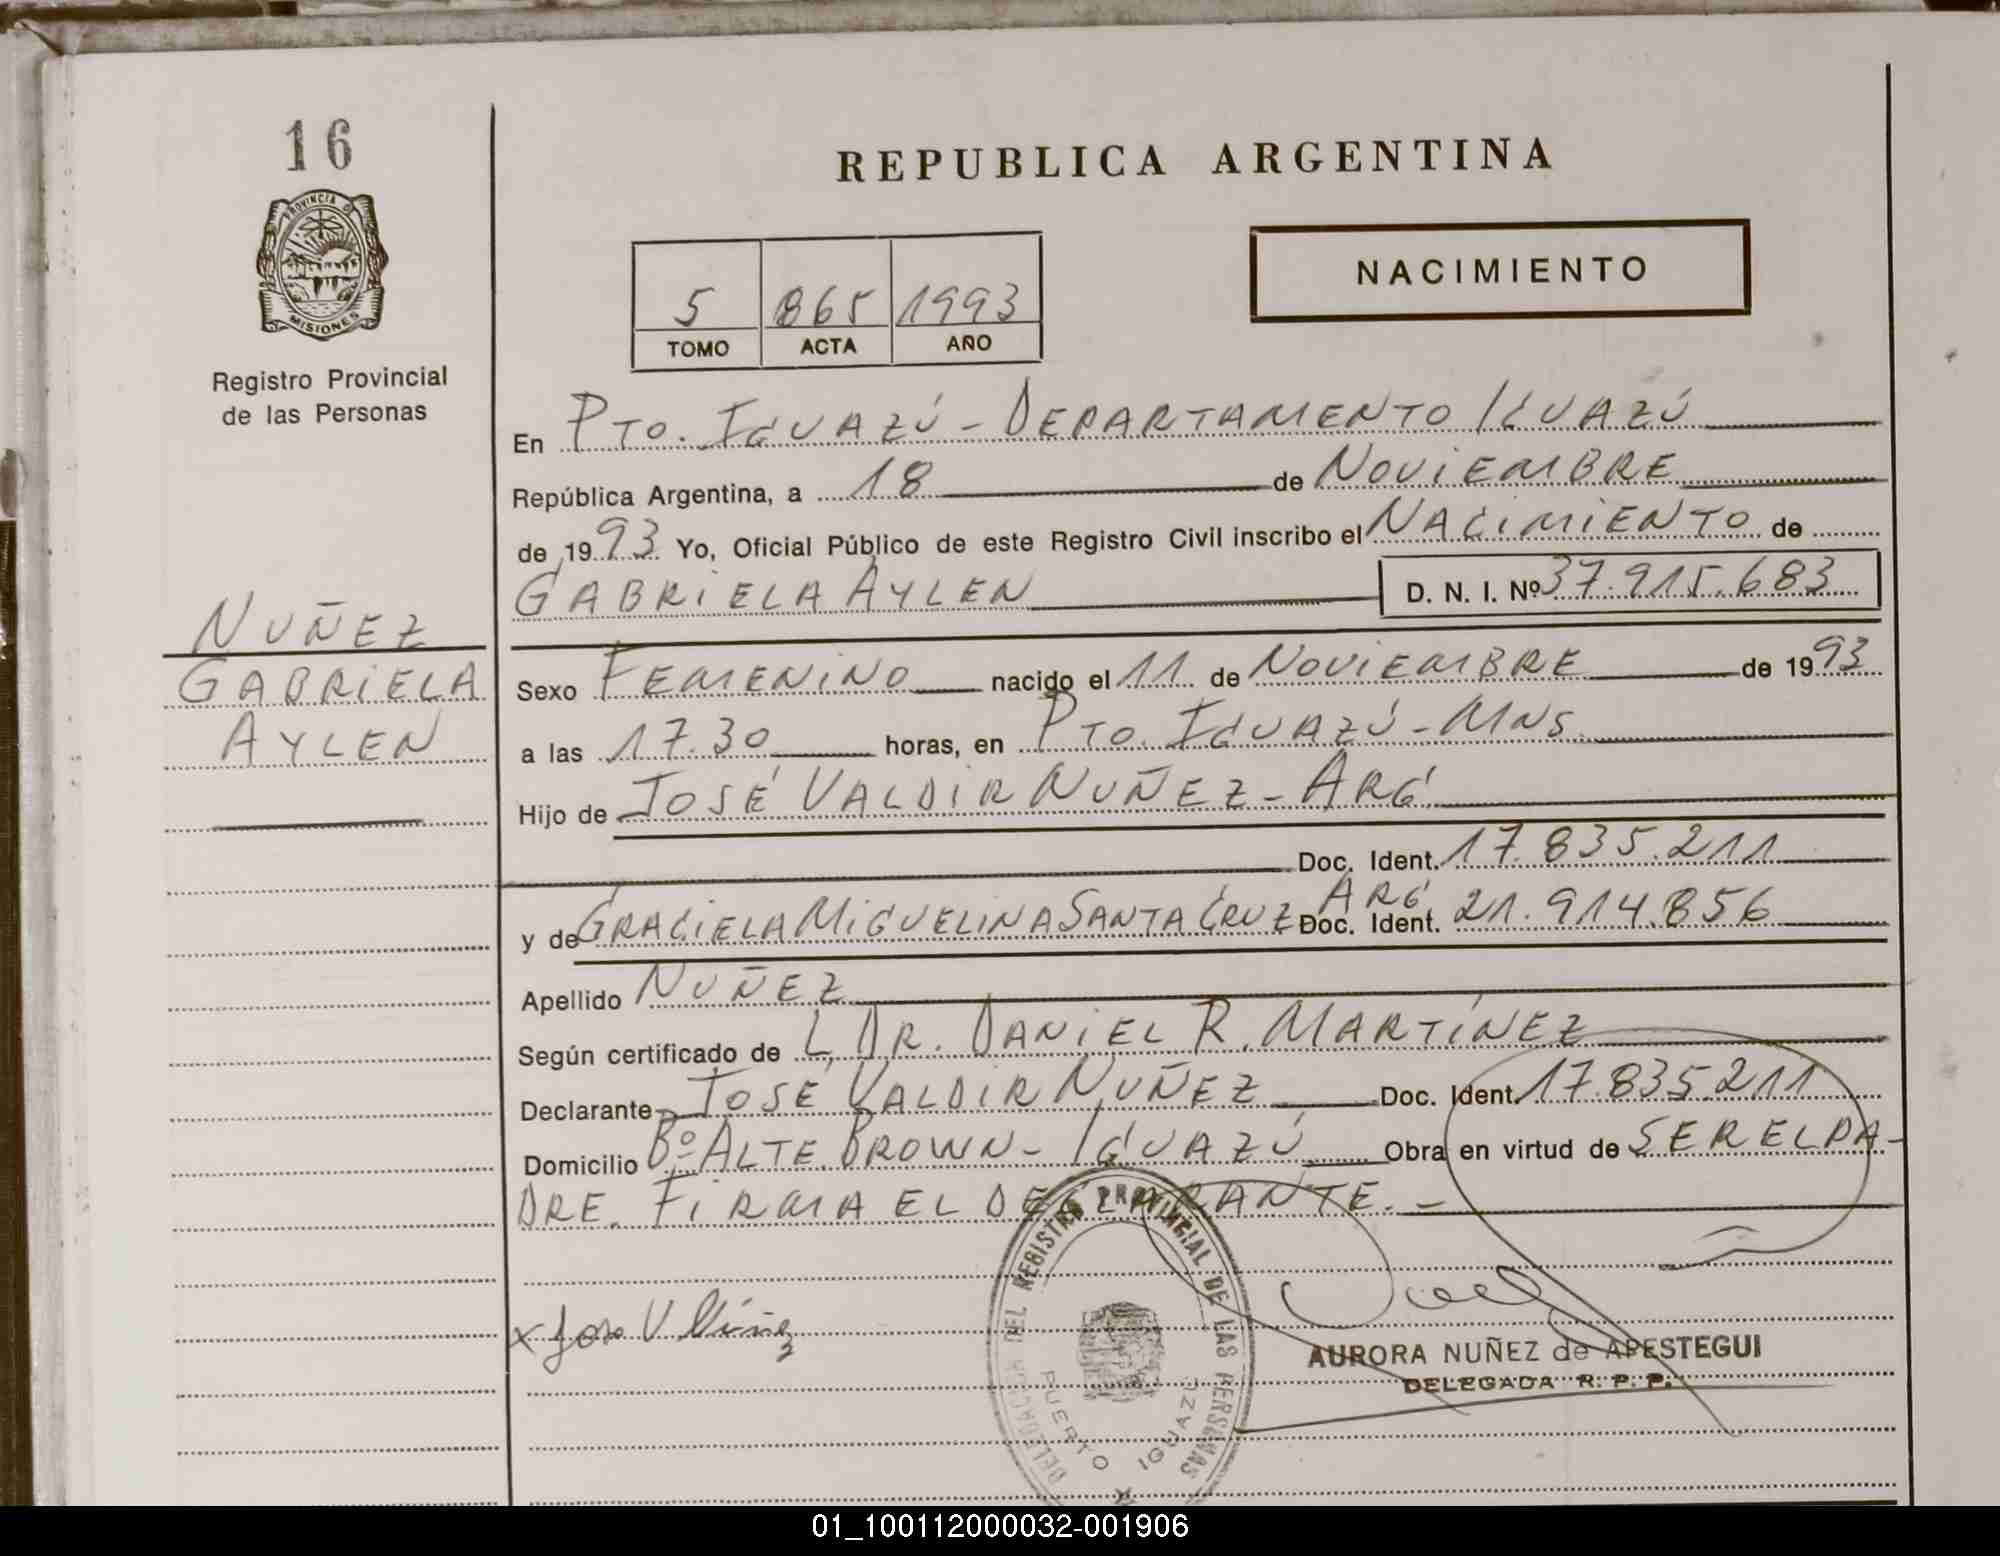 16
PROVINCIA DE
MISIONES
Registro Provincial
de las Personas
NUÑEZ
GABRIELA
AYLEN
REPUBLICA ARGENTINA
NACIMIENTO
5 865 1993
TOMO ACTA AÑO
En PTO. IGUAZÚ - DEPARTAMENTO IGUAZÚ
República Argentina, a 18 de NOVIEMBRE
de 1993 Yo, Oficial Público de este Registro Civil inscribo el NACIMIENTO de
GABRIELA AYLEN D. N. I. Nº 37.915.683
Sexo FEMENINO nacido el 11 de NOVIEMBRE de 1993
a las 17.30 horas, en PTO. IGUAZÚ - MNS.
Hijo de JOSÉ VALDIR NUÑEZ - ARG.
Doc. Ident. 17.835.211
ARG.
y de GRACIELA MIGUELINA SANTA CRUZ Doc. Ident. 21.914.856
Apellido NUÑEZ
Según certificado de L, DR. DANIEL R. MARTÍNEZ
Declarante JOSÉ VALDIR NUÑEZ Doc. Ident. 17.835.211
Domicilio Bº ALTE. BROWN - IGUAZÚ Obra en virtud de SER EL PA-
DRE. FIRMA EL DECLARANTE. -
x Jose V Núñez
DELEGACION DEL REGISTRO PROVINCIAL DE LAS PERSONAS
PUERTO IGUAZU
AURORA NUÑEZ de APESTEGUI
DELEGADA R. P. P.
01_100112000032-001906